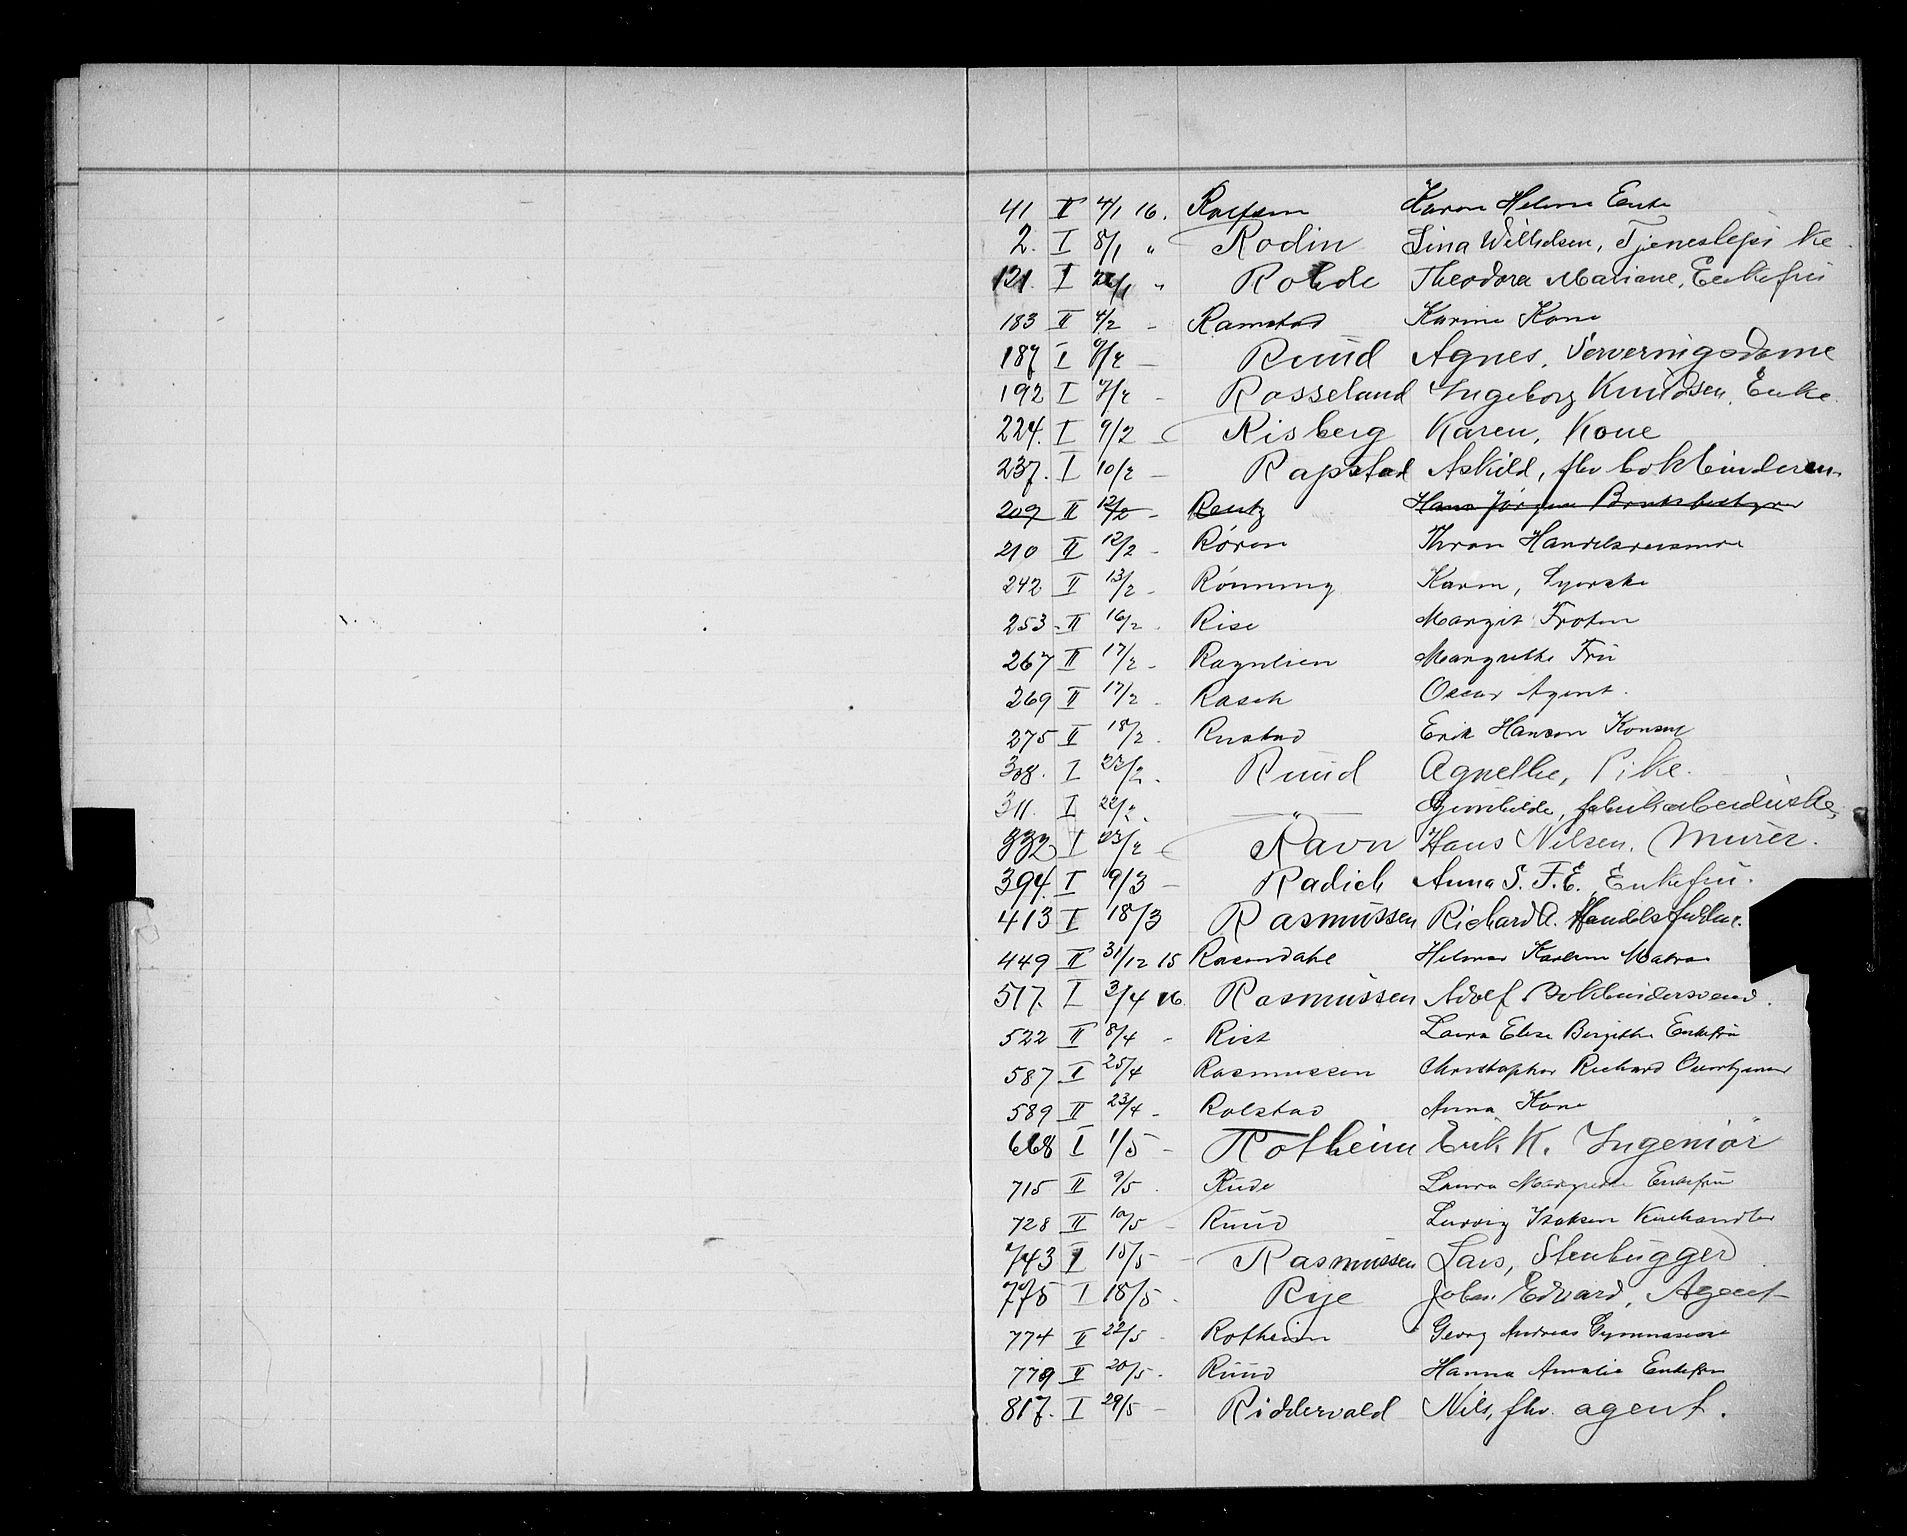 41 II 4/1 16. Rolfsen Karen Helene Enke
2. I 8/1 " Rodin Lina Wilhelsen, Tjenestepike
121. I 26/1 " Rohde Theodora Mariane, Enkefru
183 II 4/2 - Ramstad Karine Kone
187 I 9/2 - Ruud Agnes, Serveringsdame
192 I 7/2 - Rosseland Ingeborg Knudsen, Enke
224. I 9/2 - Risberg Karen, Kone
237. I 10/2 - Rapstad Askild, fhv bokbinder
209 II 12/2 - Reutz Hans Jørgen Bruksbestyrer
210 II 12/2 - Røren Handelsreisende
242 II 13/2 - Rønning Karen, Syerske
253 - II 16/2 . Rise Margit Frøken
267 II 17/2 - Margrethe Fru
269 II 17/2 . Rasch Oscar Agent.
275 II 18/2 . Rustad Erik Hansen Konsul
308. I 22/2 . Ruud Agnethe, Pike.
311. I 22/2 . — " — Gunhilde, fabrikarbeiderske
332 I 23/2 - Ravn Hans Nilsen, Murer.
394. I 9/3 - Radich Anna S. F. E. Enkefru.
413 I 18/3 Rasmussen Richard A. Handelsfuldm.
449 II 31/12 15 Rosendahl Helmer Matros
517. I 3/4 16. Rasmussen Adolf Bokbindersvend.
522 II 8/4 - Rist Laura Elise Birgitte Enkefru
587 II 25/4 Rasmussen Christopher Richard
589 II 23/4 - Rolstad Anna Kone
668 I 1/5 - Rotheim Erik K. Ingeniør
715 II 9/5 . Rude Laura Margrethe Enkefru
728 II 10/5 - Ruud Ludvig Isaksen
743 I 15/5 - Rasmussen Lars, Stenhugger
775 I 18/5 - Rye Johan Edvard, Agent
774 II 22/5 - Rotheim Georg Andreas Gymnasiast
779 II 20/5 - Ruud Hanna Amalie Enkefru
817. I 29/5 - Riddervold Nils, fhv. agent.